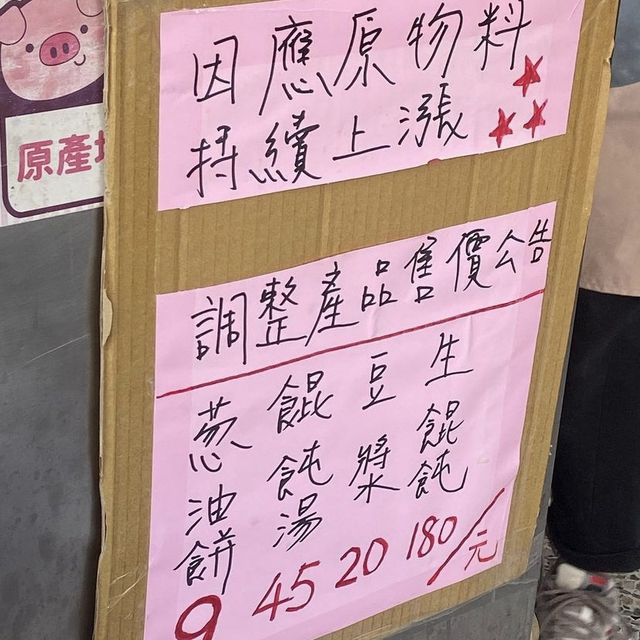 原產
因應原物料
持續上漲
調整產品售價公告
蔥油餅 9
餛飩湯 45
豆漿 20
生餛飩 180/元